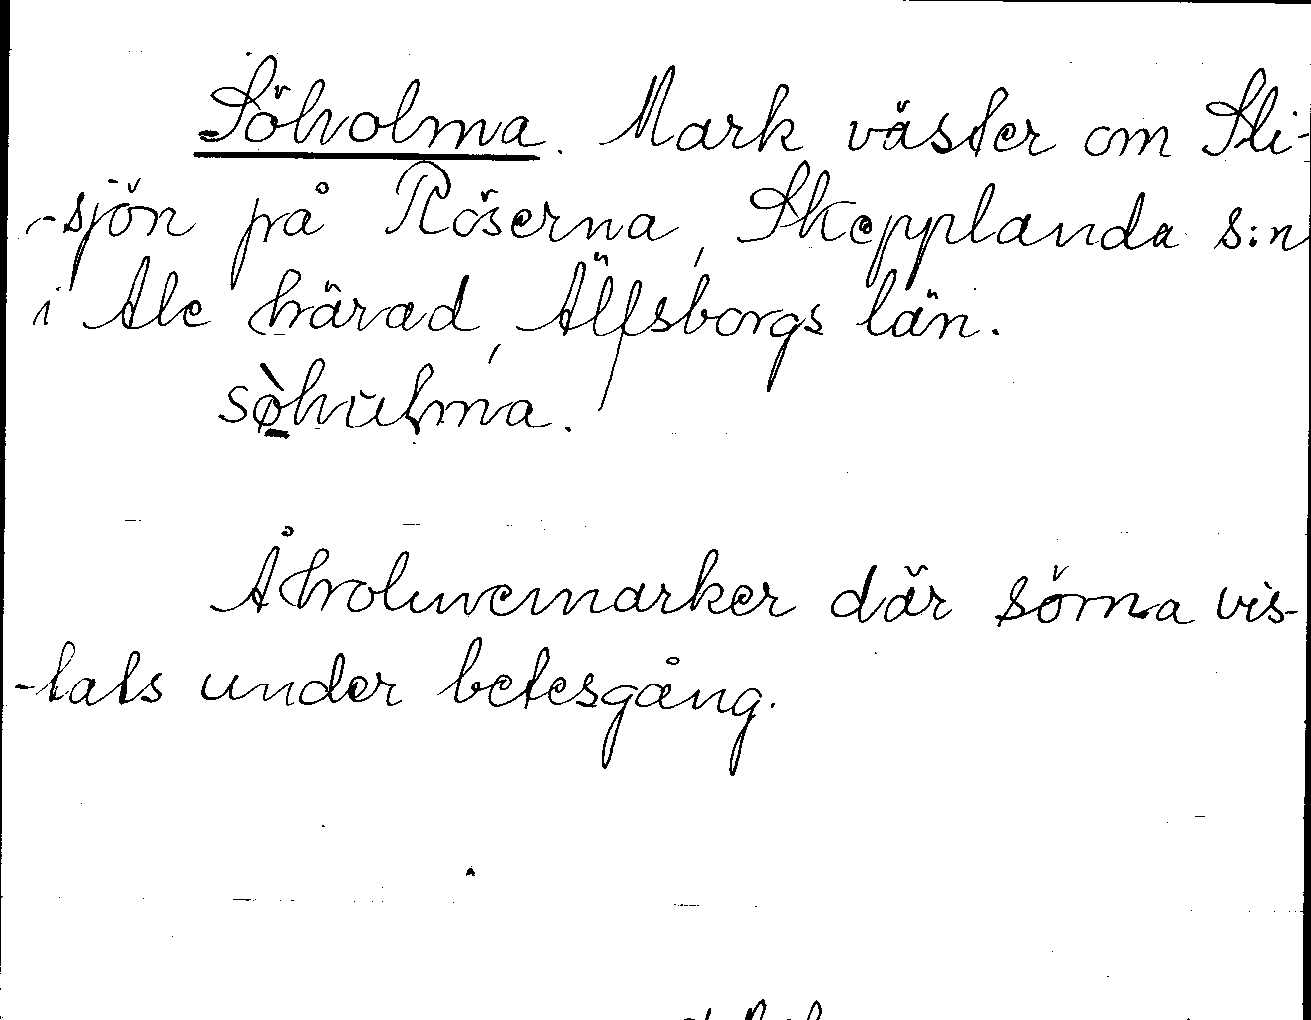 Söholma. Mark väster om Sli-
-sjön på Röserna, Skepplanda s:n
i Ale härad, Älfsborgs län.
sø̀hulma.
Åholmemarker där sörna vis-
-tats under betesgång.